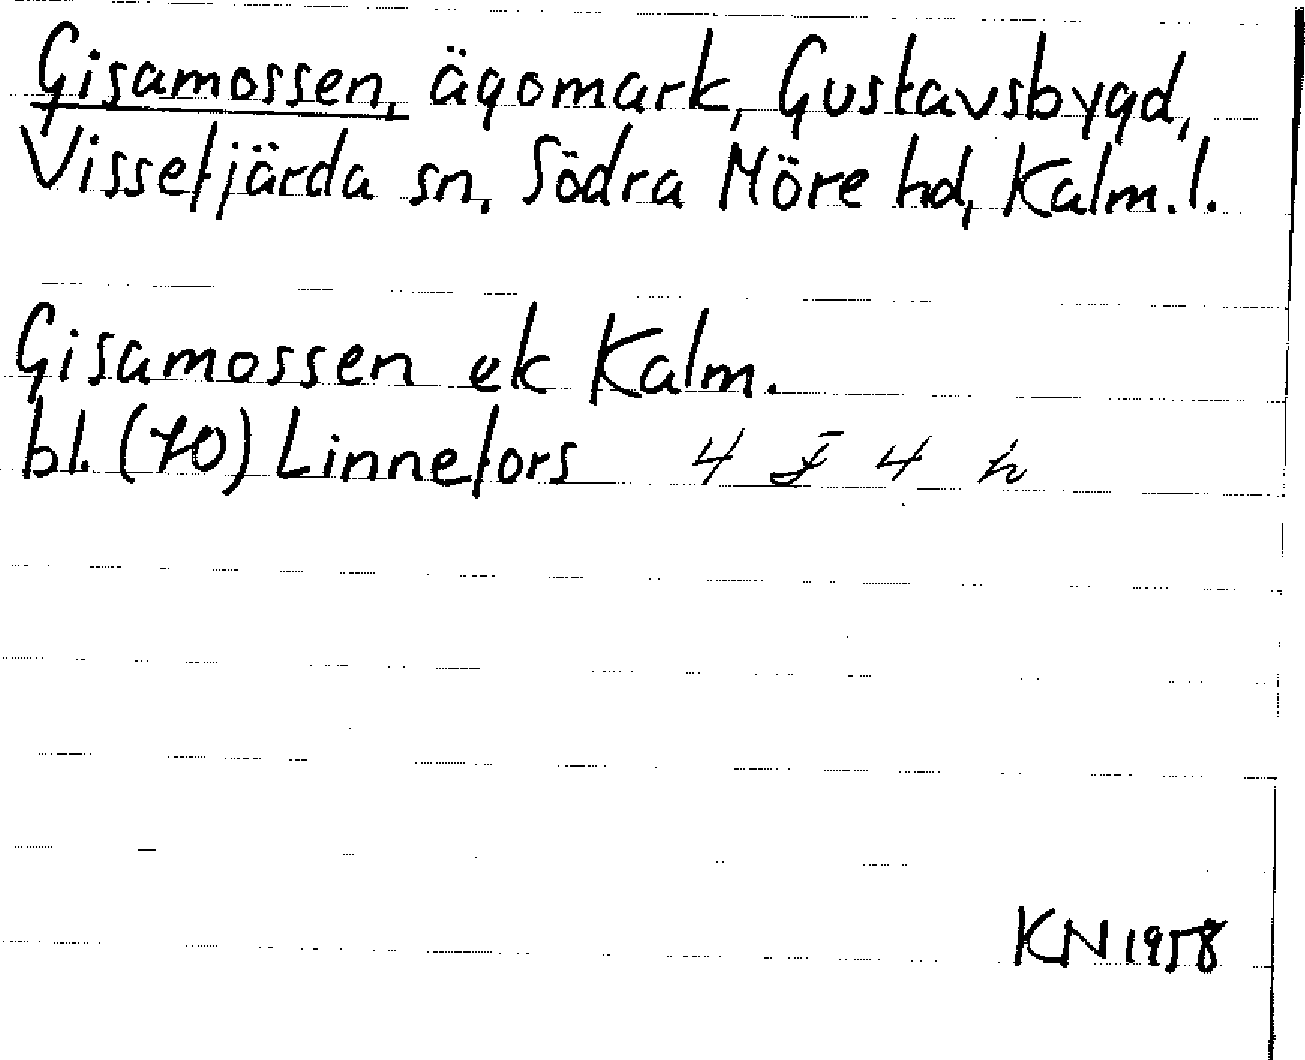 Gisamossen, ägomark, Gustavsbygd,
Vissefjärda sn, Södra Möre hd, Kalm. l.
Gisamossen ek Kalm.
bl. (70) Linnefors 4 F 4 h
KN 1958